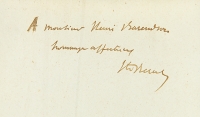 A monsieur Henri Barendson
hommage affectueux